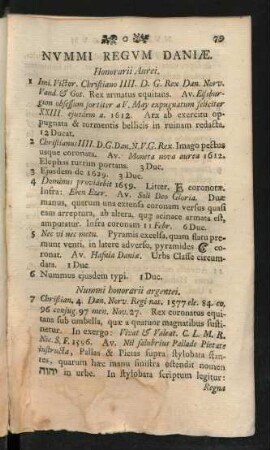 O 79
NVMMI REGVM DANIÆ.
Honorarii Aurei.
1 Imi. Victor. Christiano IIII. D. G. Rex Dan. Norv.
Vand. & Got. Rex armatus equitans. Av. Elsburgum
obsessum fortiter a V. May expugnatum feliciter
XXIII ejusdem a. 1612. Arx ab exercitu oppugnata
& tormentis bellicis in ruinam redacta.
12 Ducat.
2 Christianus IIII. D.G. Dan. N.V.G. Rex. Imago pectus
usque coronata. Av. Moneta nova aurea 1622.
Elephas turrim portans. 3 Duc.
3 Ejusdem de 1629. 3 Duc.
4 Dominus providebit 1659. Litter. coronatæ.
Infra: Eben Ezer. Av. Soli Deo Gloria. Duæ
manus, quarum una extensa coronam versus quasi
eam arreptura, ab altera, quæ acinace armata est,
amputata. Infra coronam 11 Febr. 6 Duc.
5 Nec vi nec metu. Pyramis excelsa, quam flatu premunt
venti, in latere adverso, pyramides
coronat. Av. Hafnia Daniæ. Urbs Classe circumdata.
1 Duc.
6 Nummus ejusdem typi. 1 Duc.
Nummi honorarii argentei.
7 Christian. 4. Dan. Norv. Regi nat. 1577 ele. 84. co.
96 conjug. 97 men. Nov. 27. Rex coronatus equitans
sub umbella, quæ a quatuor magnatibus sustinetur.
In exergo: Vivat & Valeat. C. L. M. R.
Nic. S. F. 1596. Av. Nil salubrius Pallade Pietate
instructa, Pallas & Pietas supra stylobata stantes,
quarum hæc manu sinistra ostendit nomen
יהוה in urbe. In stylobata scriptum legitur:
Regna